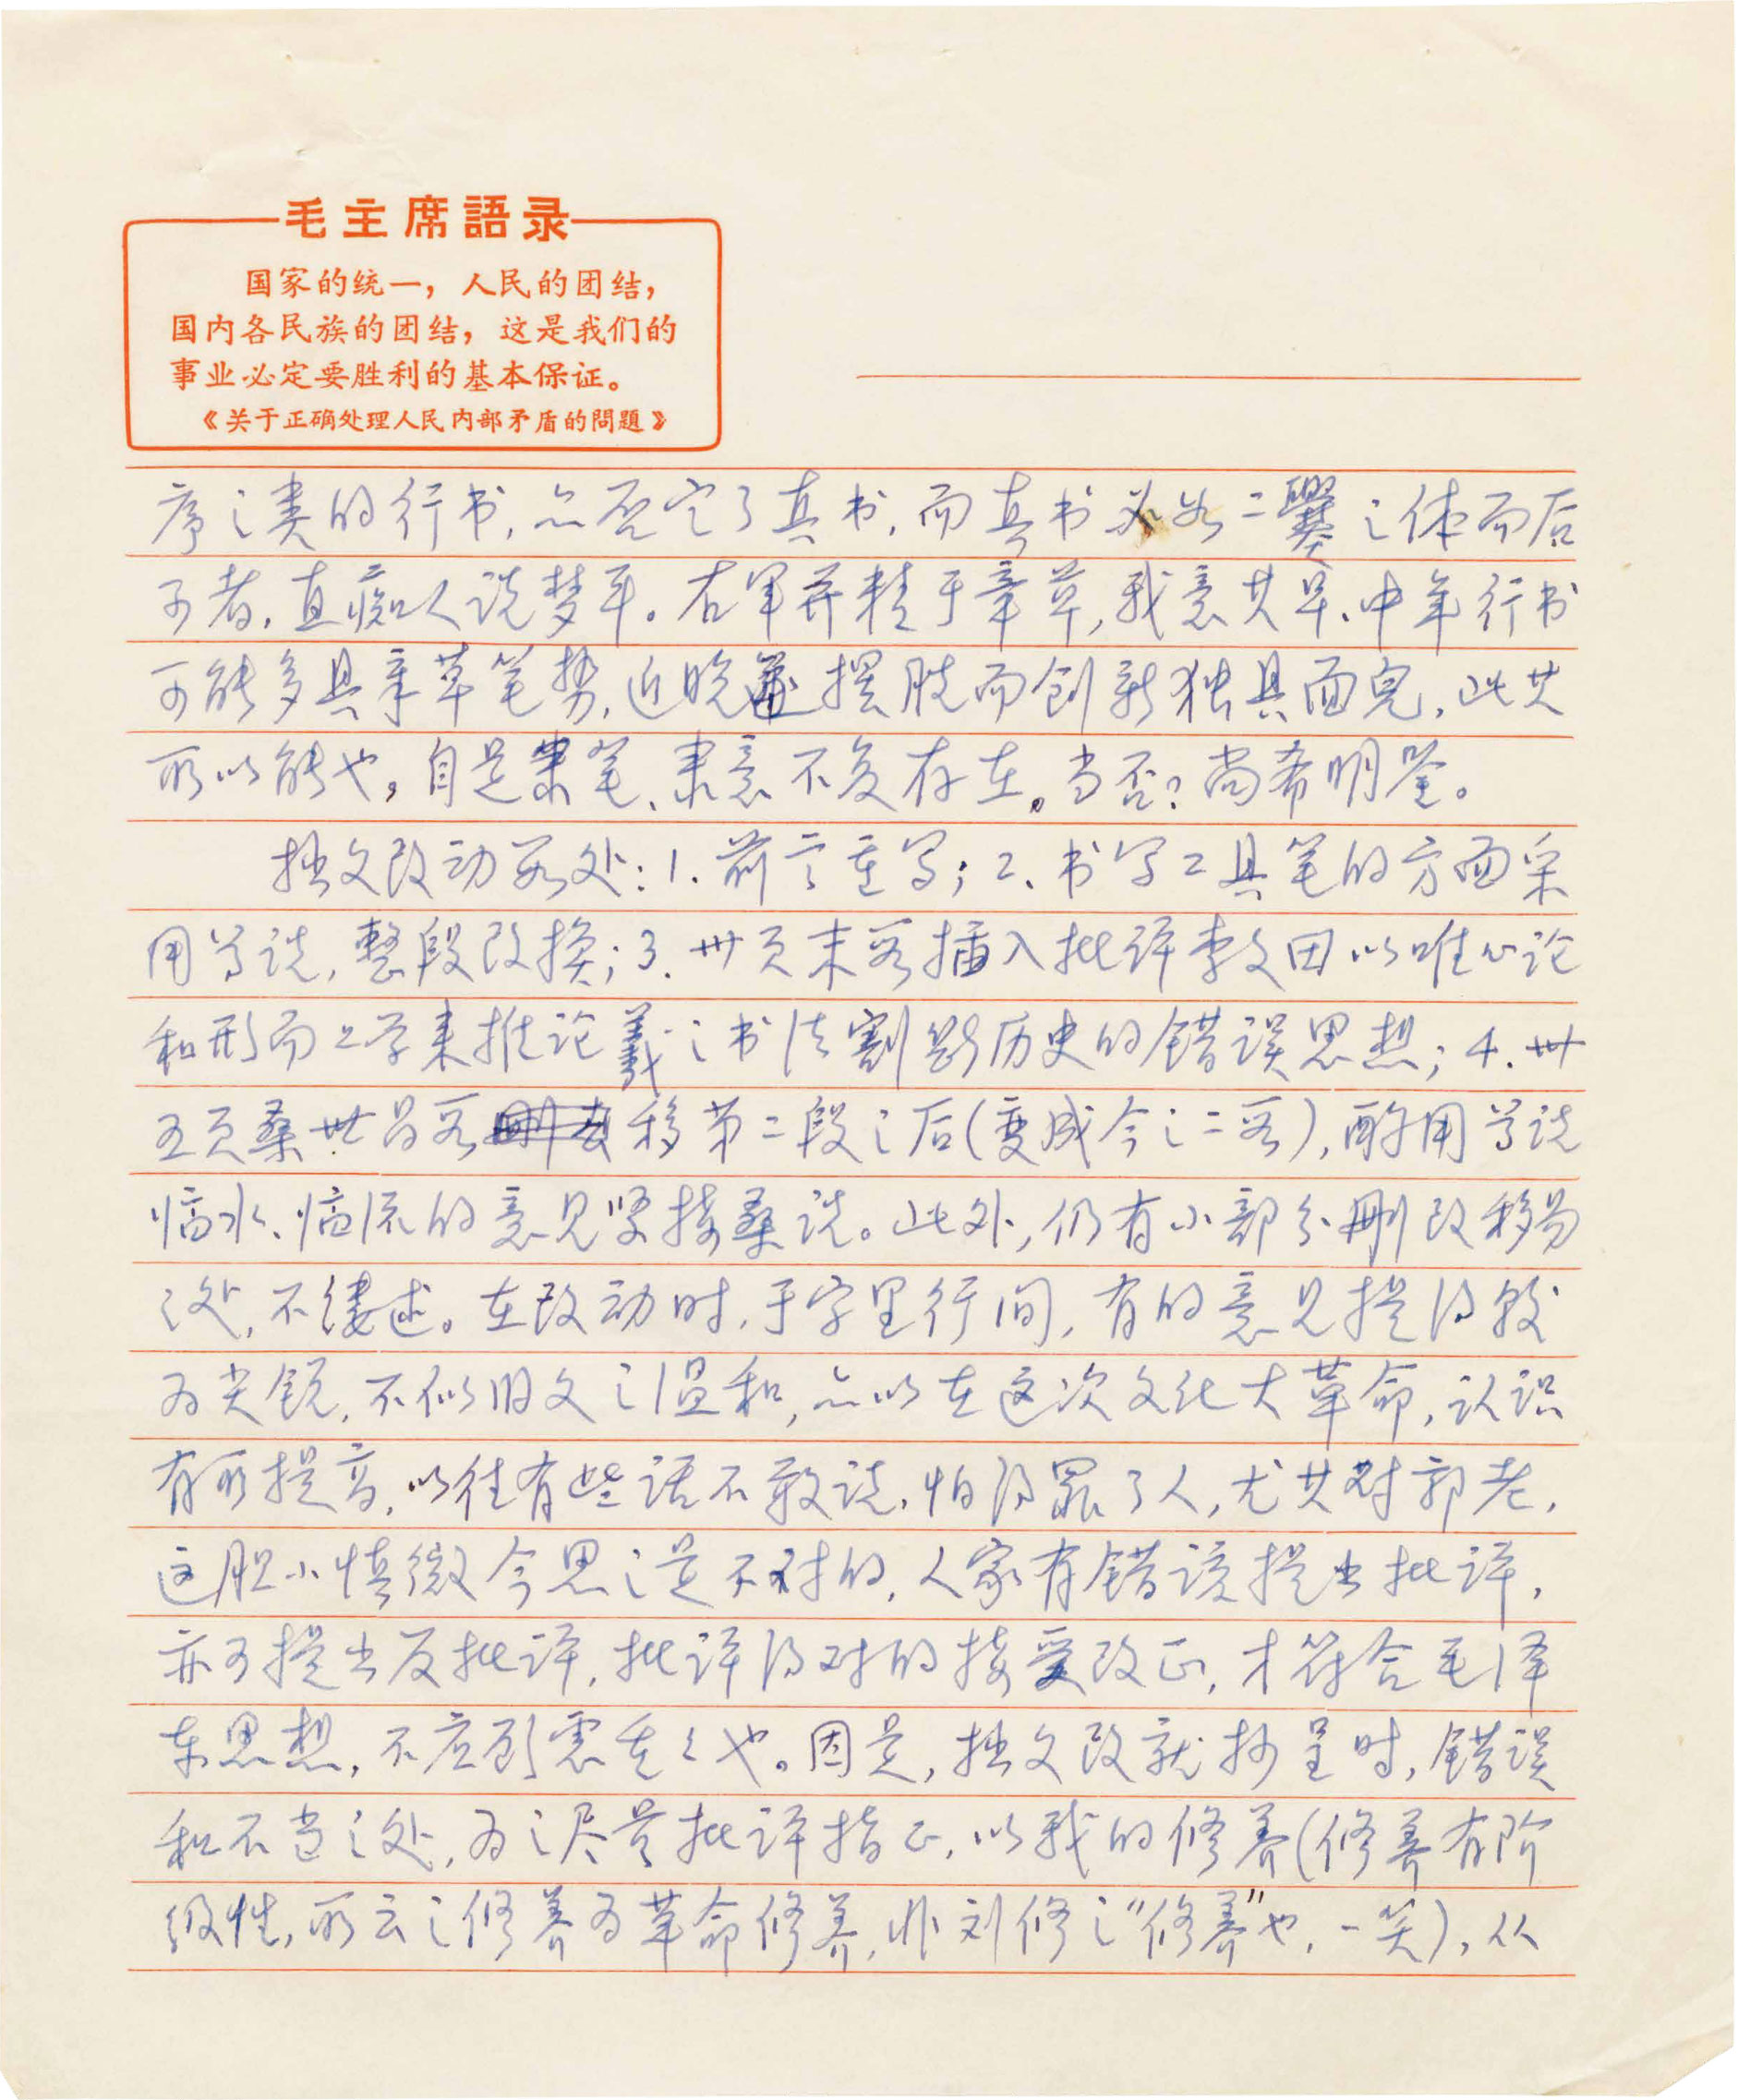 毛主席語录
国家的统一，人民的团结，
国内各民族的团结，这是我们的
事业必定要胜利的基本保证。
《关于正确处理人民内部矛盾的問題》
序之类的行书，亦否定了真书，而真书必如二爨之体而后
可者，直痴人说梦耳。右军并精于章草，我意其早、中年行书
可能多具章草笔势，近晚遂摆脱而创新独具面皃，此其
所以能也，自是隶笔、隶意不复存在。当否？尚希明鉴。
拙文改动若处：1.前言重写；2、书写工具笔的方面采
用尊说，整段改换；3.卅页末略插入批评李文田以唯心论
和形而上学来推论羲之书法割断历史的错误思想；4.卅
五页桑世昌节移第二段之后(变成今之二节)，酌用尊说
恼水、恼流的意见紧接桑说。此外，仍有小部分删改移易
之处，不缕述。在改动时，于字里行间，有的意见提得较
为尖锐，不似旧文之温和，亦以在这次文化大革命，认识
有所提高，以往有些话不敢说，怕得罪了人，尤其对郭老，
这胆小慎微今思之是不对的，人家有错该提出批评，
亦可提出反批评，批评得对的接受改正，才符合毛泽
东思想，不应顾虑重重也。因是，拙文改就抄呈时，错误
和不当之处，为之尽量批评指正，以我的修养(修养有阶
级性，所云之修养为革命修养，非刘修之“修养”也，一笑)，从